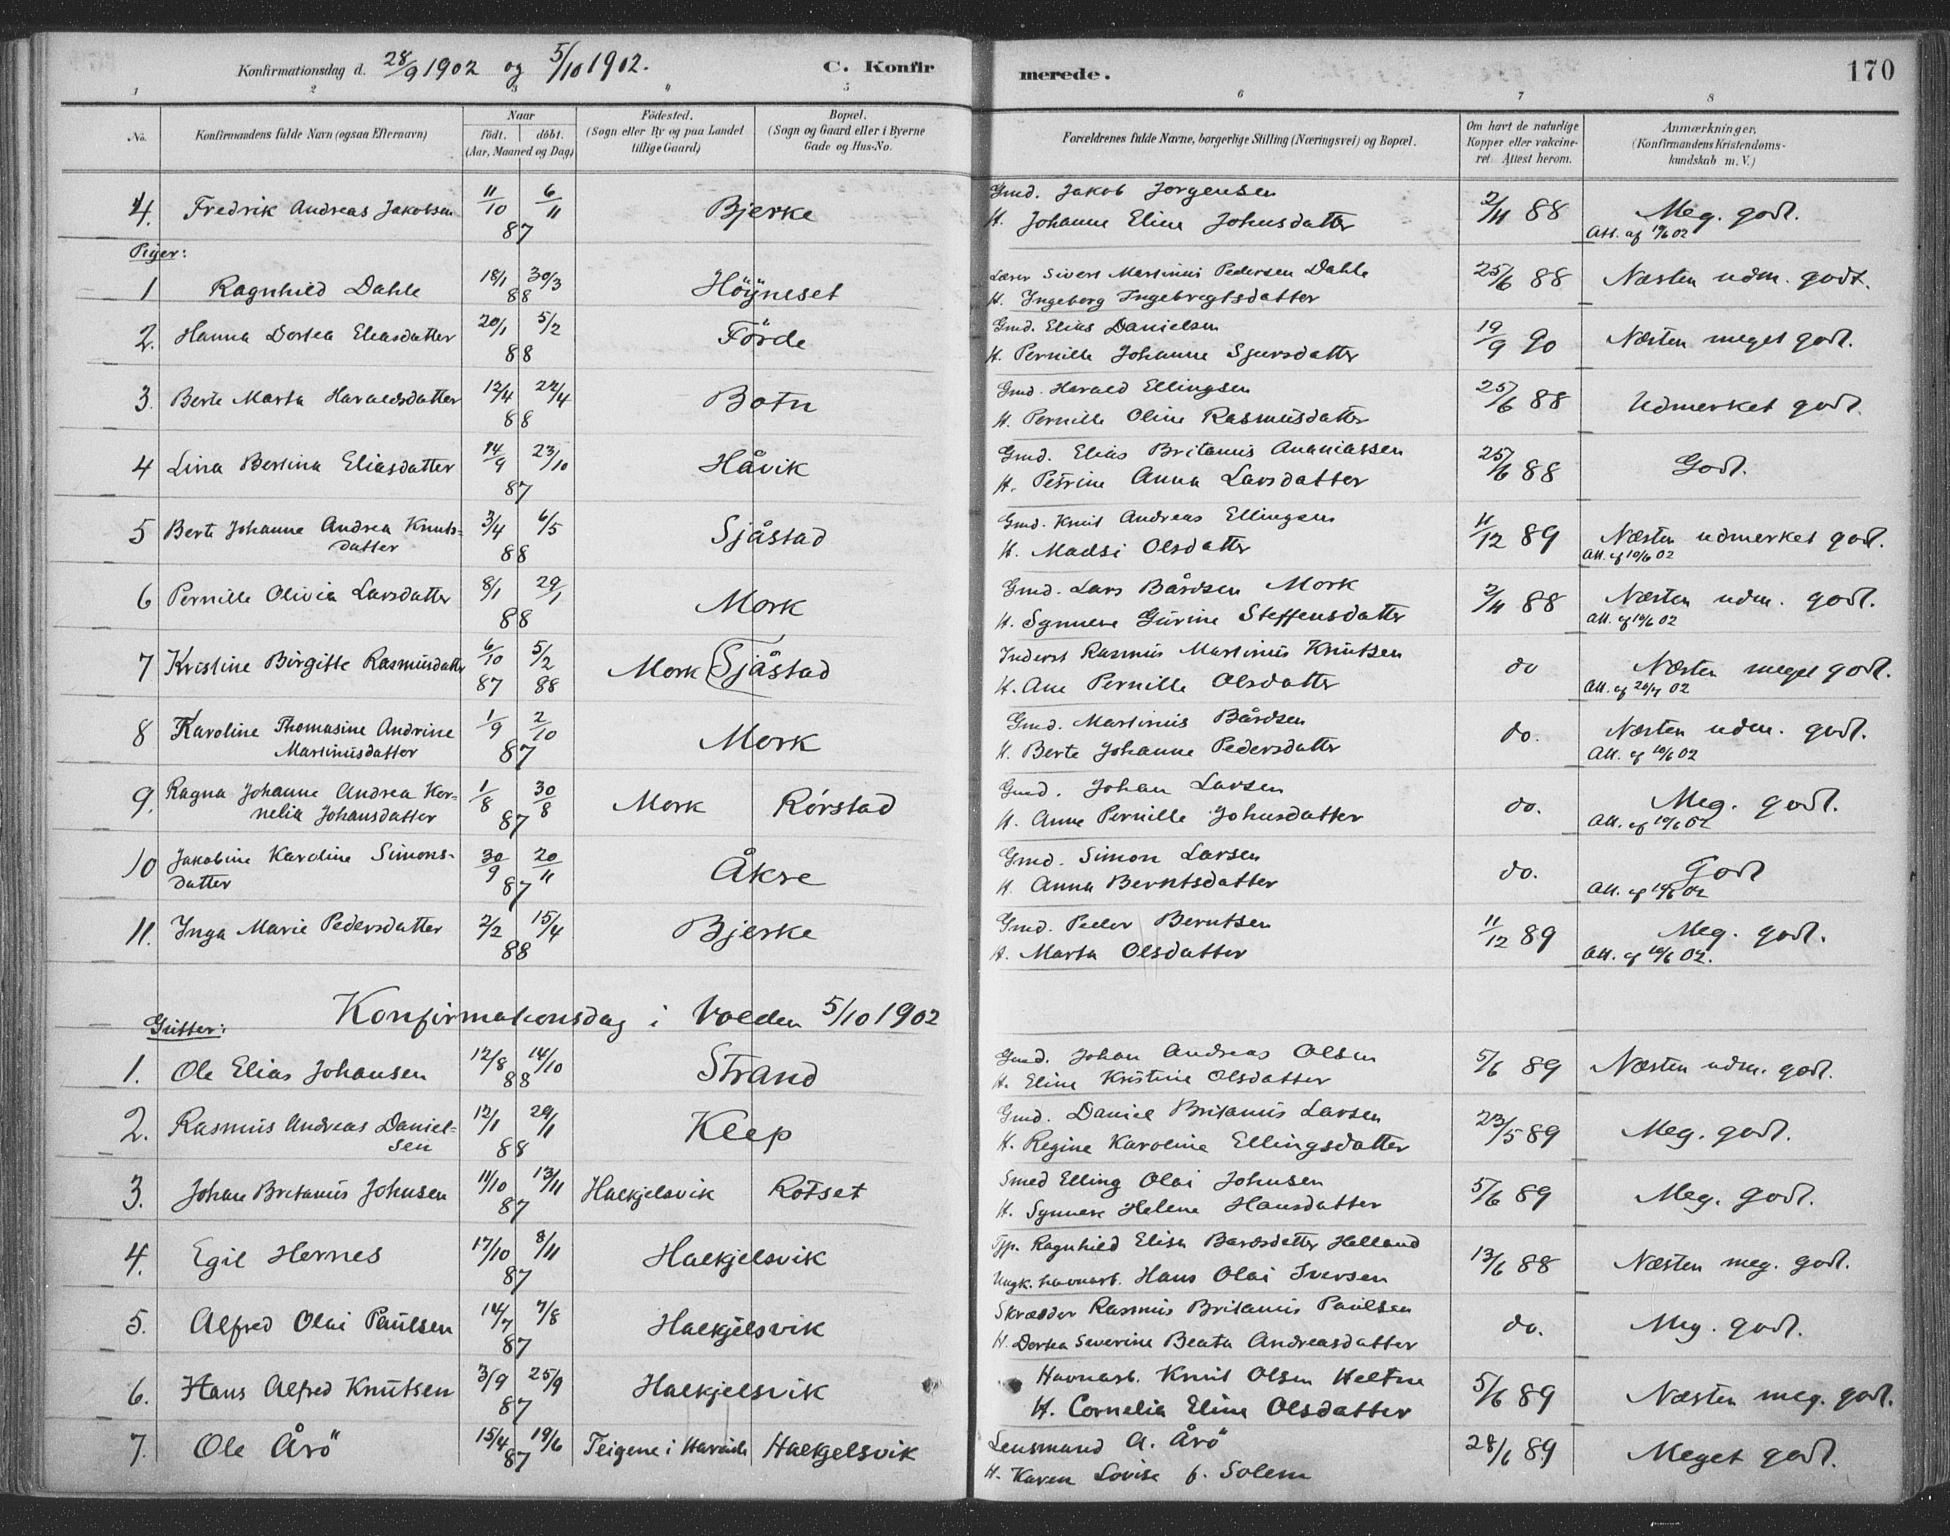 Konfirmationsdag d. 28/9 1902 og 5/10 1902. C. Konfir merede. 170
1 2 3 4 5 6 7 8
No. Konfirmandens fulde Navn (ogsaa Efternavn) Naar födt. döbt. (Aar, Maaned og Dag) Födested. (Sogn eller By og paa Landet tillige Gaard) Bopæl. (Sogn og Gaard eller i Byerne Gade og Hus-No. Forældrenes fulde Navne, borgerlige Stilling (Næringsvei) og Bopæl. Om havt de naturlige Kopper eller vakcineret. Attest herom. Anmærkninger. (Konfirmandens Kristendomskundskab m. V.)
4. Fredrik Andreas Jakobsen 11/10 6/11 87 Bjerke Gmd. Jakob Jorgensen 2/11 88 Meg. godt.
H. Johanne Eline Johnsdatter Att. af 10/6 02
Piger:
1 Ragnhild Dahle 18/1 30/3 88 Höÿneset Lærer Sivert Martinus Pedersen Dahle 25/6 88 Næsten udm. godt.
H. Ingeborg Ingebregtsdatter
2. Hanna Dortea Eleasdatter 20/1 5/2 88 Förde Gmd. Elias Danielsen 19/9 90 Næsten meget godt.
H. Pernille Johanne Sjursdatter
3. Berte Marta Haraldsdatter 12/4 22/4 88 Botn Gmd. Harald Ellingsen 25/6 88 Udmerket godt.
H. Pernille Oline Rasmusdatter
4 Lina Bertina Eliasdatter 14/9 23/10 87 Håvik Gmd. Elias Britanus Ananiassen 25/6 88 Godt.
H. Petrine Anna Larsdatter
5 Berte Johanne Andrea Knuts- 3/4 6/5 88 Sjåstad Gmd. Knut Andreas Ellingsen 11/12 89 Næsten udmerket godt.
datter H. Madsi Olsdatter Att. af 10/6 02
6 Pernille Olivia Larsdatter 8/1 29/1 88 Mork Gmd. Lars Bårdsen Mork 2/11 88 Næsten udm. godt.
H. Synnere Gurine Steffensdatter Att. af 10/6 02
7 Kristine Birgitte Rasmusdatter 6/10 87 5/2 88 Mork Sjåstad Inderst Rasmus Martinus Knutsen do Næsten meget godt.
H. Ane Pernille Olsdatter Att. af 20/7 02
8 Karoline Thomasine Andrine 1/9 2/10 87 Mork Gmd. Martinus Bårdsen do. Næsten udm. godt.
Martinusdatter H. Berte Johanne Pedersdatter Att. af 10/6 02
9. Ragna Johanne Andrea Kor- 1/8 30/8 87 Mork Rörstad Gmd. Johan Larsen do. Meg. godt.
nelia Johansdatter H. Anne Pernille Johnsdatter Att. af 10/6 02
10 Jakobine Karoline Simons- 30/9 20/11 87 Åkre Gmd. Simon Larsen do. Godt
datter H. Anna Berntsdatter Att. af 10/6 02
11. Inga Marie Pedersdatter 2/2 15/4 88 Bjerke Gmd. Peder Berntsen 11/12 89 Meg. godt.
H. Marta Olsdatter Att. af 10/6 02.
Konfirmationsdag i Volden 5/10 1902
Gutter:
1. Ole Elias Johansen 12/8 14/10 88 Strand Gmd. Johan Andreas Olsen 5/6 89 Næsten udm. godt.
H. Eline Kristine Olsdatter
2. Rasmus Andreas Daniel- 12/1 29/1 88 Kleep Gmd. Daniel Britanus Larsen 23/5 89 Meg. godt.
sen H. Regine Karoline Ellingsdatter
3. Johan Britanus Johnsen 11/10 13/11 87 Halkjelsvik Rotset Smed Elling Olai Johnsen 5/6 89 Meg. godt.
H. Synnere Helene Hansdatter
4. Egil Hernes 17/10 8/11 87 Halkjelsvik Tjp. Ragnhild Elisa Bardsdatter Helland 13/6 88 Næsten meg. godt.
Ungk. havnarb. Hans Olai Iversen
5. Alfred Olai Paulsen 14/7 7/8 87 Halkjelsvik Skrædder Rasmus Britanus Paulsen do. Meg. godt.
H. Dortea Severine Beata Andreasdatter
6. Hans Alfred Knutsen 3/9 25/9 87 Halkjelsvik Havnarb. Knut Olsen Heltne 5/6 89 Næsten meg. godt.
H. Cornelia Eline Olsdatter
7. Ole Årö 15/4 19/6 87 Teigene i Hareids Halkjelsvik Lensmand A. Årö 28/6 89 Meget godt.
H. Karen Lovise f. Solem